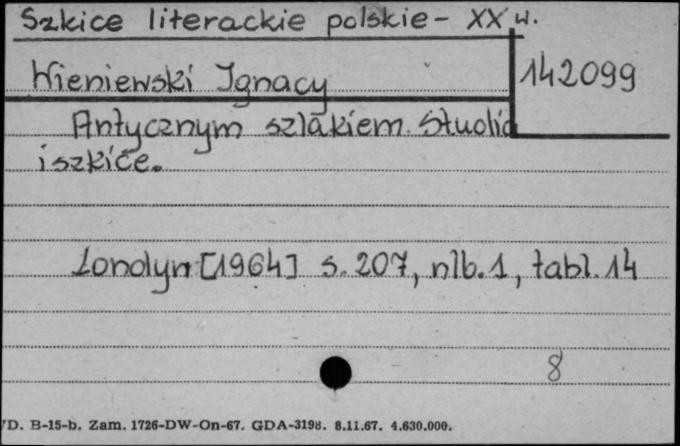 Szkice literackie polskie - XX w.
Wieniewski Ignacy
142099
Antycznym szlakiem. Studia
i szkice.
Londyn [1964] s. 207, nlb. 1, tabl. 14
8
D. B-15-b. Zam. 1726-DW-On-67. GDA-3198. 8.11.67. 4.630.000.